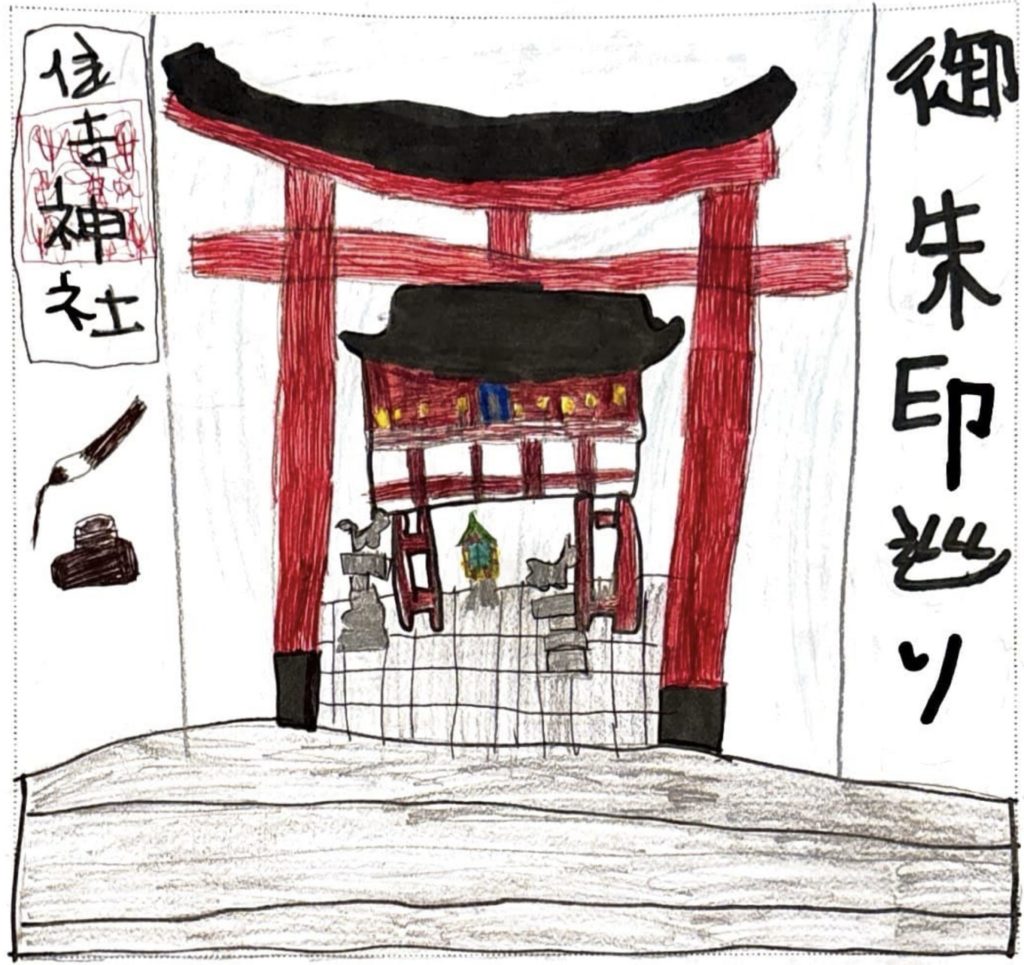 御朱印巡り
住吉神社